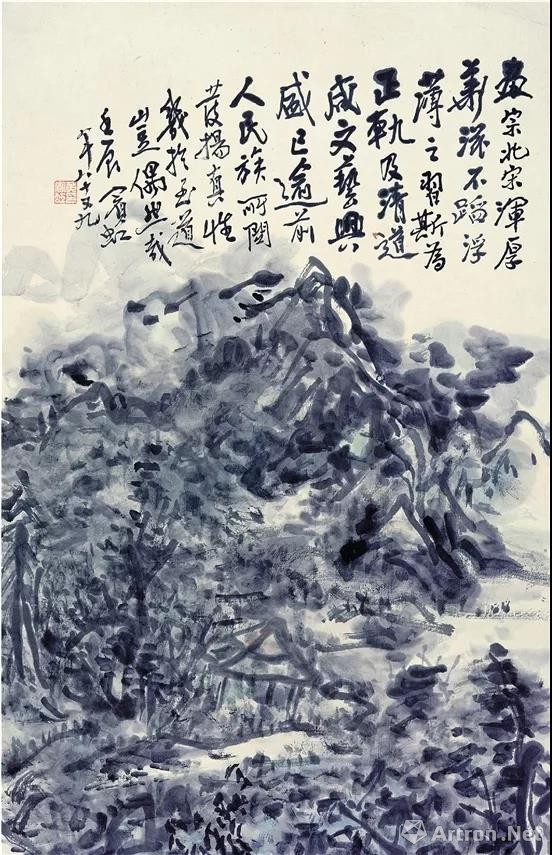 畫宗北宋渾厚
華滋不蹈浮
薄之習斯為
正軌及清道
咸文藝興
盛已逾前
人民族所關
發揚真性
幾於至道
豈偶然哉
壬辰賓虹
年八十又九
Artron.Net